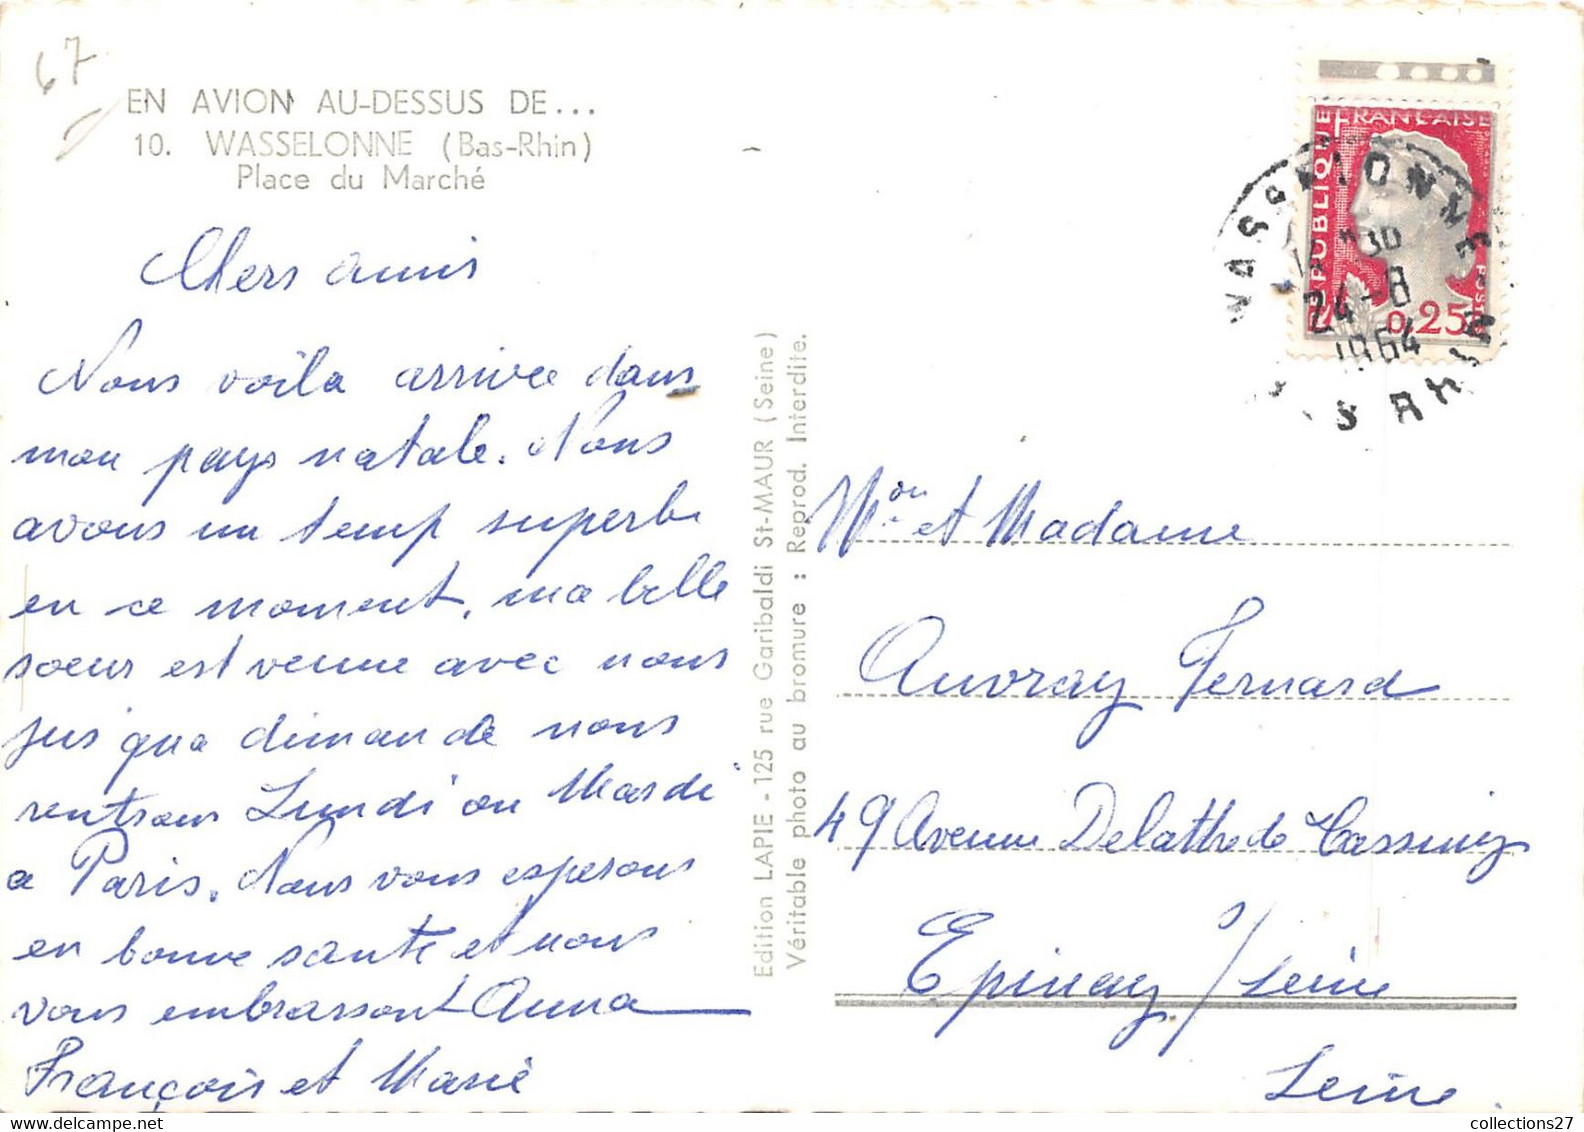 67
EN AVION AU-DESSUS DE...
10. WASSELONNE (Bas-Rhin)
Place du Marché
Chers amis
Nous voila arrivee dans
mon pays natale. Nous
avons un temp superbe
en ce moment, ma belle
soeur est venue avec nous
jus qua dimanche nous
rentrons Lundi ou Mardi
a Paris. Nous vous esperons
en bonne sante et nous
vous embrassont Anna
François et Marie
Edition LAPIE - 125 rue Garibaldi St-MAUR (Seine)
Véritable photo au bromure : Reprod. Interdite.
REPUBLIQUE FRANÇAISE
POSTES
0,25
WASSELONNE
30
24-8
1964
BAS RHIN
Mon et Madame
Auvray Fernard
49 Avenue Delattre de Tassigny
Epinay / Seine
Seine.
collections27